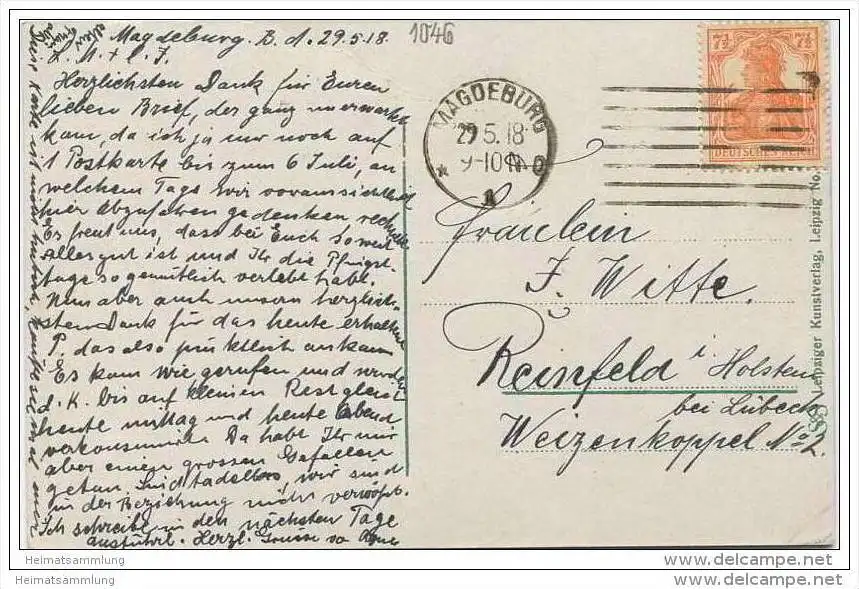 Magdeburg. B. d. 29.5.18.
1046
L. M. + l. F.
Herzlichsten Dank für Euren
lieben Brief, der ganz unerwartet
kam, da ich ja nur noch auf
1 Postkarte bis zum 6 Juli, an
welchem Tage wir voraussichtlich
hier abzufahren gedenken rechnete
Es freut uns, dass bei Euch soweit
alles gut ist und Ihr die Pfingst-
tage so gemütlich verlebt habt.
Nun aber auch unsern herzlich-
sten Dank für das heute erhaltene
P. das also pünktlich ankam
Es kam wie gerufen und wurde
d. K. bis auf kleinen Rest gleich
heute mittag und heute Abend
verkonsumiert Da habt Ihr mir
aber einen grossen Gefallen
getan. Sind tadellos, wir sind
in der Beziehung nicht verwöhnt.
Ich schreibe in den nächsten Tage
ausführl. Herzl. Grüsse von
Diese Karte ist
MAGDEBURG
29.5.18
9-10
1
7½ 7½
DEUTSCHES REICH
Fräulein
F. Witte.
Reinfeld i Holstein
bei Lübeck
Weizenkoppel No 2.
Leipziger Kunstverlag, Leipzig No.
Heimatsammlung
Heimatsammlung
http://www.delcampe.net
http://www.delcampe.net